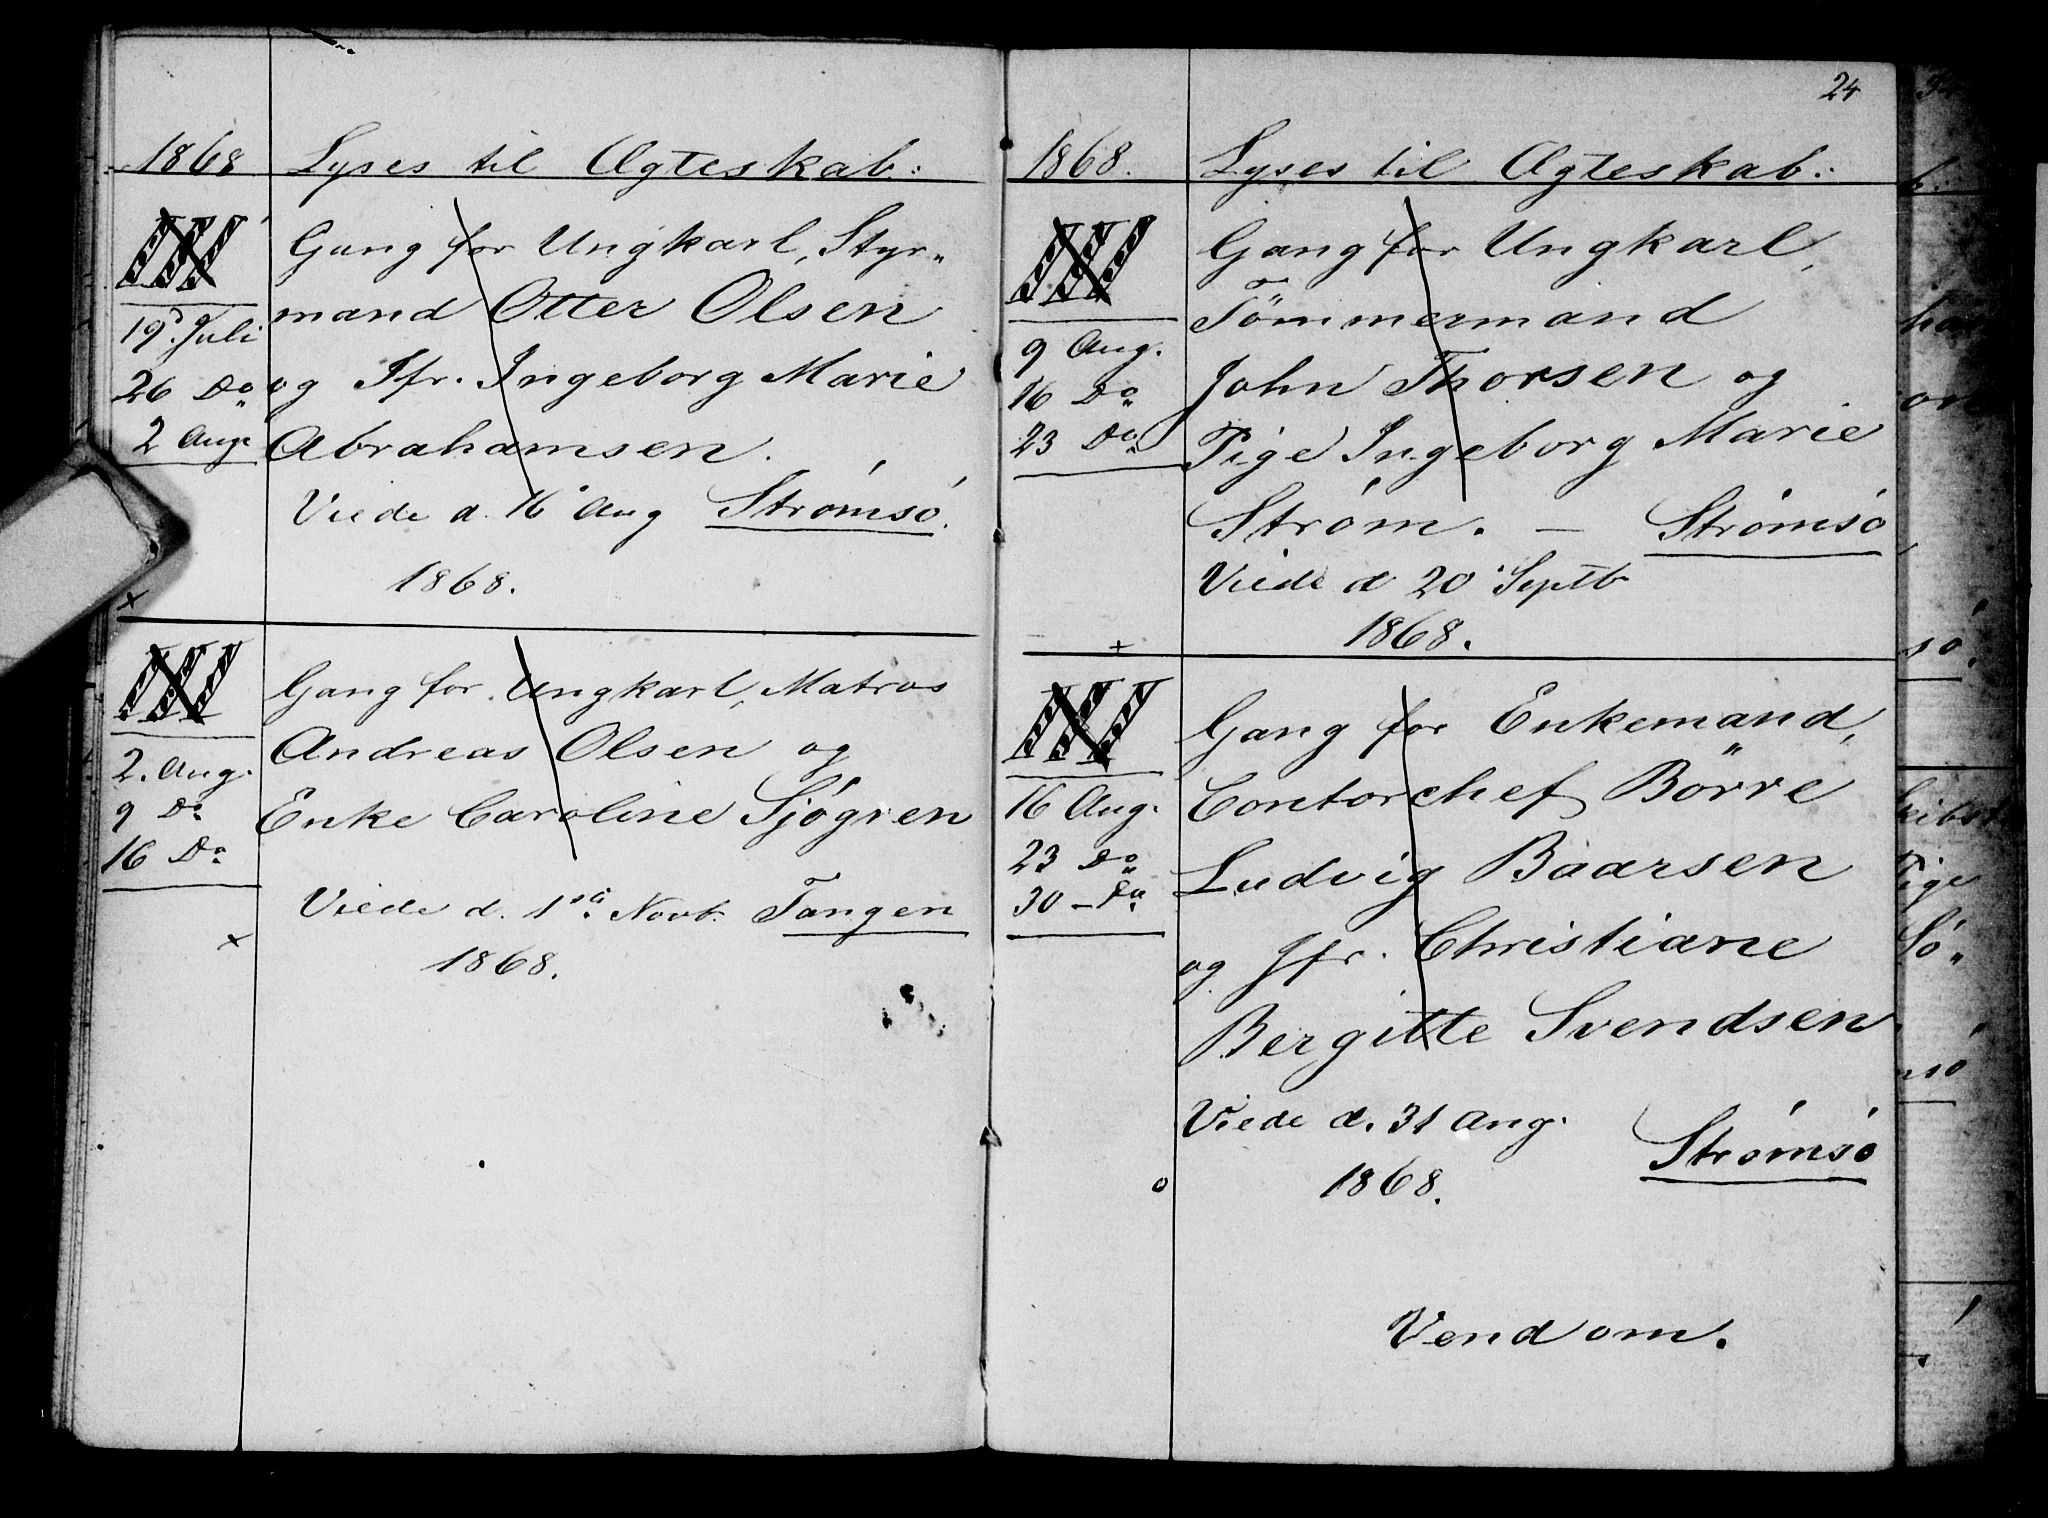 1868 Lyses til Ægteskab:
III
Gang for Ungkarl, Styr„
mand Otter Olsen
og Jfr. Ingeborg Marie
Abrahamsen.
19. Juli
26 Do
2 Aug.
Viede d. 16 Aug Strømsø.
1868.
+
III
Gang for Ungkarl, Matros
Andreas Olsen og
Enke Caroline Sjøgren
2. Aug.
9 Do
16 Do
Viede d. 1ste Novb. Tangen
1868.
+
24
1868. Lyses til Ægteskab:
III
Gang for Ungkarl,
Tömmermand
John Thorsen og
Pige Ingeborg Marie
Strøm. — Strømsø
9 Aug.
16 Do
23 Do
Viede d 20 Septb
1868.
+
III
Gang for Enkemand,
Contorchef Börre
Ludvig Baarsen
og Jfr. Christiane
Bergitte Svendsen
16 Aug.
23 Do
30 – Do
Viede d. 31 Aug.
Strømsø
1868.
o
Vend om.